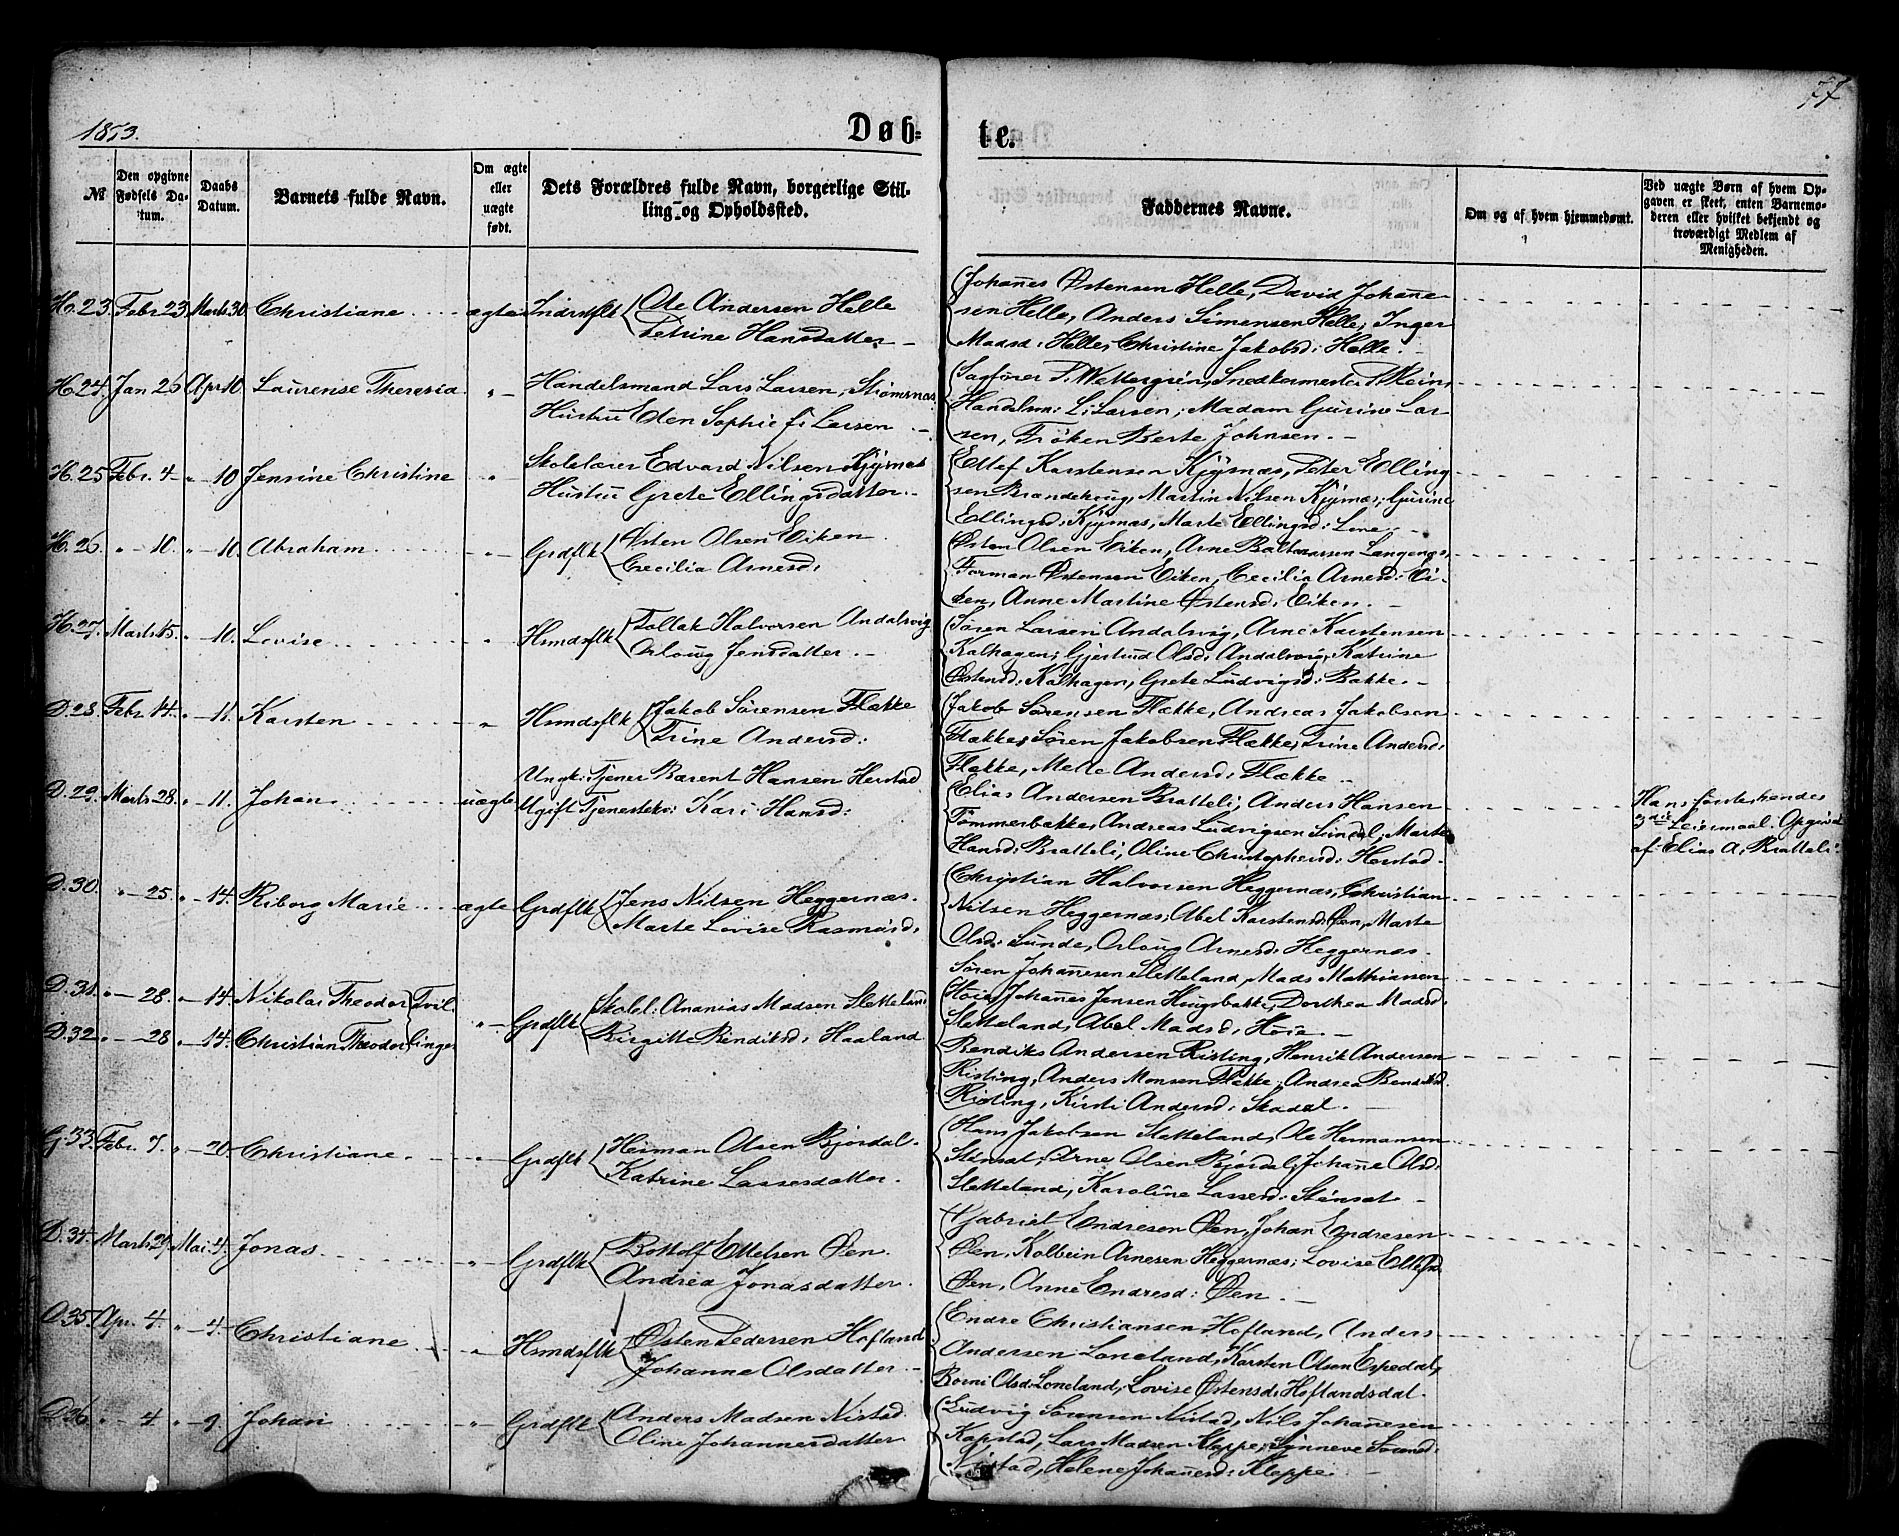 77
1873.
Døb-
te.
№
Den opgivne Fødsels Datum.
Daabs Datum.
Barnets fulde Navn.
Om ægte eller uægte født.
Dets Forældres fulde Navn, borgerlige Stilling og Opholdssted.
Faddernes Navne.
Om og af hvem hjemmedøbt.
Ved uægte Børn af hvem Opgaven er skeet, enten Barnemoderen eller hvilket bekjendt og troværdigt Medlem af Menigheden.
H. 23. Febr 23. Marts 30. Christiane ægte Indrstflk
Ole Andersen Helle
Petrine Hansdatter
Johañes Østensen Helle, David Johañe-
sen Helle, Anders Simensen Helle; Inger
Madsd: Helle, Christine Jakobsd: Helle.
H. 24. Jan 26 Apr 10. Laurense Theresia "
Handelsmand Lars Larsen, Strømsnæs
Hustru Elen Sophie f: Larsen
Sagfører P. Wettergrén, Snedkermester P. Rein,
Handelsm: L. Larsen; Madam Gurine Lar-
sen, Frøken Berte Johnsen.
H. 25 Febr. 4 " 10 Jensine Christine "
Skolelærer Edvard Nilsen Kjysnæs
Hustru Grete Ellingsdatter.
Ellef Karstensen Kjysnæs, Peter Elling-
sen Brandehoug, Martin Nilsen Kjysnæs; Gurine
Ellingsd: Kjysnæs, Marte Ellingsd: Lone.
H. 26. " 10. " 10. Abraham " Grdflk
Østen Olsen Eiken
Cecilia Arnesd:
Østen Olsen Eiken, Arne Baltzersen Langeng,
Torman Østensen Eiken, Cecilia Arnesd: Ei-
ken, Anne Martine Østensd: Eiken.
H. 27. Marts 15. " 10. Lovise " Hsmdsflk
Tollak Halvorsen Andalsvig
Orloug Jensdatter.
Søren Larsen Andalsvig, Arne Karstensen
Kalhagen; Gjertrud Olsd: Andalsvig, Katrine
Østensd: Kalhagen, Grete Ludvigsd: Bakke.
D. 28. Febr 14. " 11. Karsten " Hsmdsflk
Jakob Sørensen Flække
Trine Andersd:
Jakob Sørensen Flække, Andreas Jakobsen
Flække, Søren Jakobsen Flække; Trine Andersd:
Flække, Mette Andersd: Flække
D. 29. Marts 28. " 11. Johan uægte
Ungk: Tjener Bærent Hansen Herstad
Ugift Tjenestekv: Kari Hansd:
Elias Andersen Bratteli, Anders Hansen
Tømmerbakke, Andreas Ludvigsen Sundal; Marte
Hansd: Bratteli, Oline Christophersd: Herstad.
Hans første, hendes
3die Leiermaal. Opgivet
af Elias A. Bratteli.
D. 30. " 25. " 14. Riborg Marie ægte Grdflk
Jens Nilsen Heggernæs.
Marte Lovise Rasmusd:
Christian Halvorsen Heggernæs, Christian
Nilsen Heggernæs; Abel Karstensd: Øen, Marte
Olsd: Sunde, Orloug Arnesd: Heggernæs.
D. 31. " 28. " 14. Nikolai Theodor Tvil-
D. 32. " 28 " 14. Christian Theodor linger " Grdflk
Skolel: Ananias Madsen Sletteland
Birgitte Bendiksd: Haaland
Søren Johañesen Sletteland, Mads Mathiassen
Høie, Johañes Jensen Hougsbakke; Dorthea Madsd:
Sletteland, Abel Madsd: Høie.
Bendiks Andersen Risting, Henrik Andersen
Risting, Anders Monsen Flække; Andrea Bendiksd.
Risting, Kirsti Andersd: Skadal.
G. 33. Febr. 7. " 20. Christiane " Grdflk
Herman Olsen Bjordal.
Katrine Lassesdatter.
Hans Jakobsen Sletteland, Ole Hermansen
Stensæt, Arne Olsen Bjordal; Johañe Olsd:
Sletteland, Karoline Lassesd: Stensæt
D. 34. Marts 29. Mai 4. Jonas " Grdflk
Bottolf Ellefsen Øen.
Andrea Jonasdatter.
Gabriel Endresen Øen, Johan Endresen
Øen, Kolbein Arnesen Heggernæs; Lovise Ellefsd
Øen, Anne Endresd: Øen
D. 35. Apr. 4. " 4. Christiane " Hsmdsflk
Østen Pedersen Hofland
Johanne Olsdatter
Endre Christiansen Hofland, Anders
Andersen Loneland, Karsten Olsen Espedal;
Borni Olsd: Loneland, Lovise Østensd: Hoflandsdal.
D. 36. " 4 " 9. Johan " Grdflk
Anders Madsen Nistad.
Oline Johannesdatter
Ludvig Sørensen Nistad, Nils Johañesen
Kapstad, Lars Madsen Kleppe; Synneve Sørensd:
Nistad, Helene Johañesd: Kleppe.